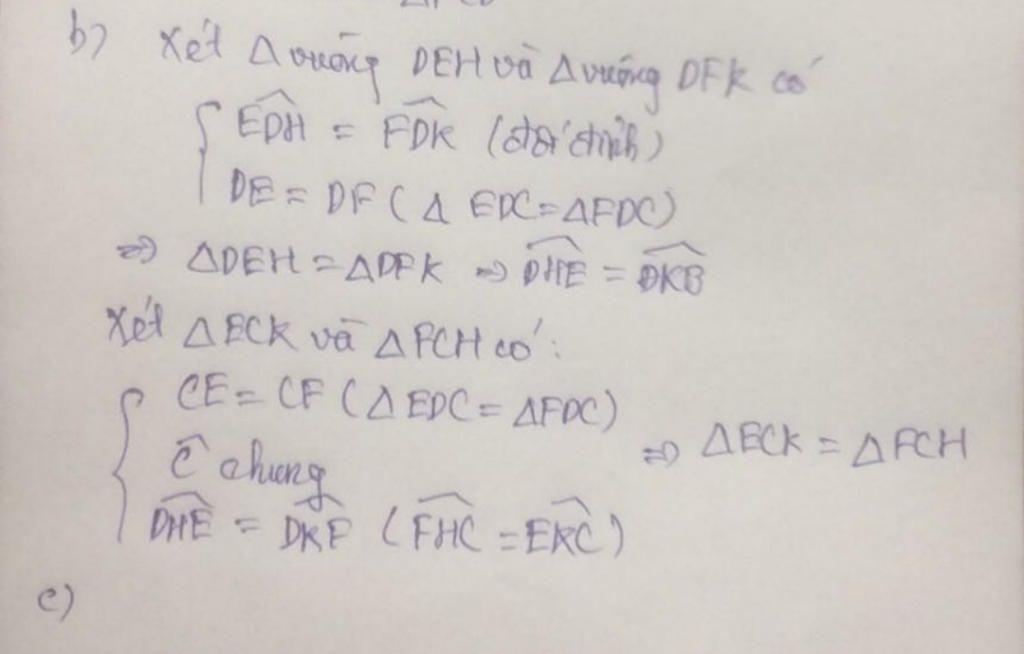 b) Xét Δ vuông DEH và Δ vuông DFK có
EDH = FDK (đối đỉnh)
DE = DF (Δ EDC = ΔFDC)
=> ΔDEH = ΔDFK => DHE = DKB
Xét ΔECK và ΔFCH có:
CE = CF (Δ EDC = ΔFDC)
Ĉ chung
=> ΔECK = ΔFCH
DHE = DKF (FHC = EKC)
c)